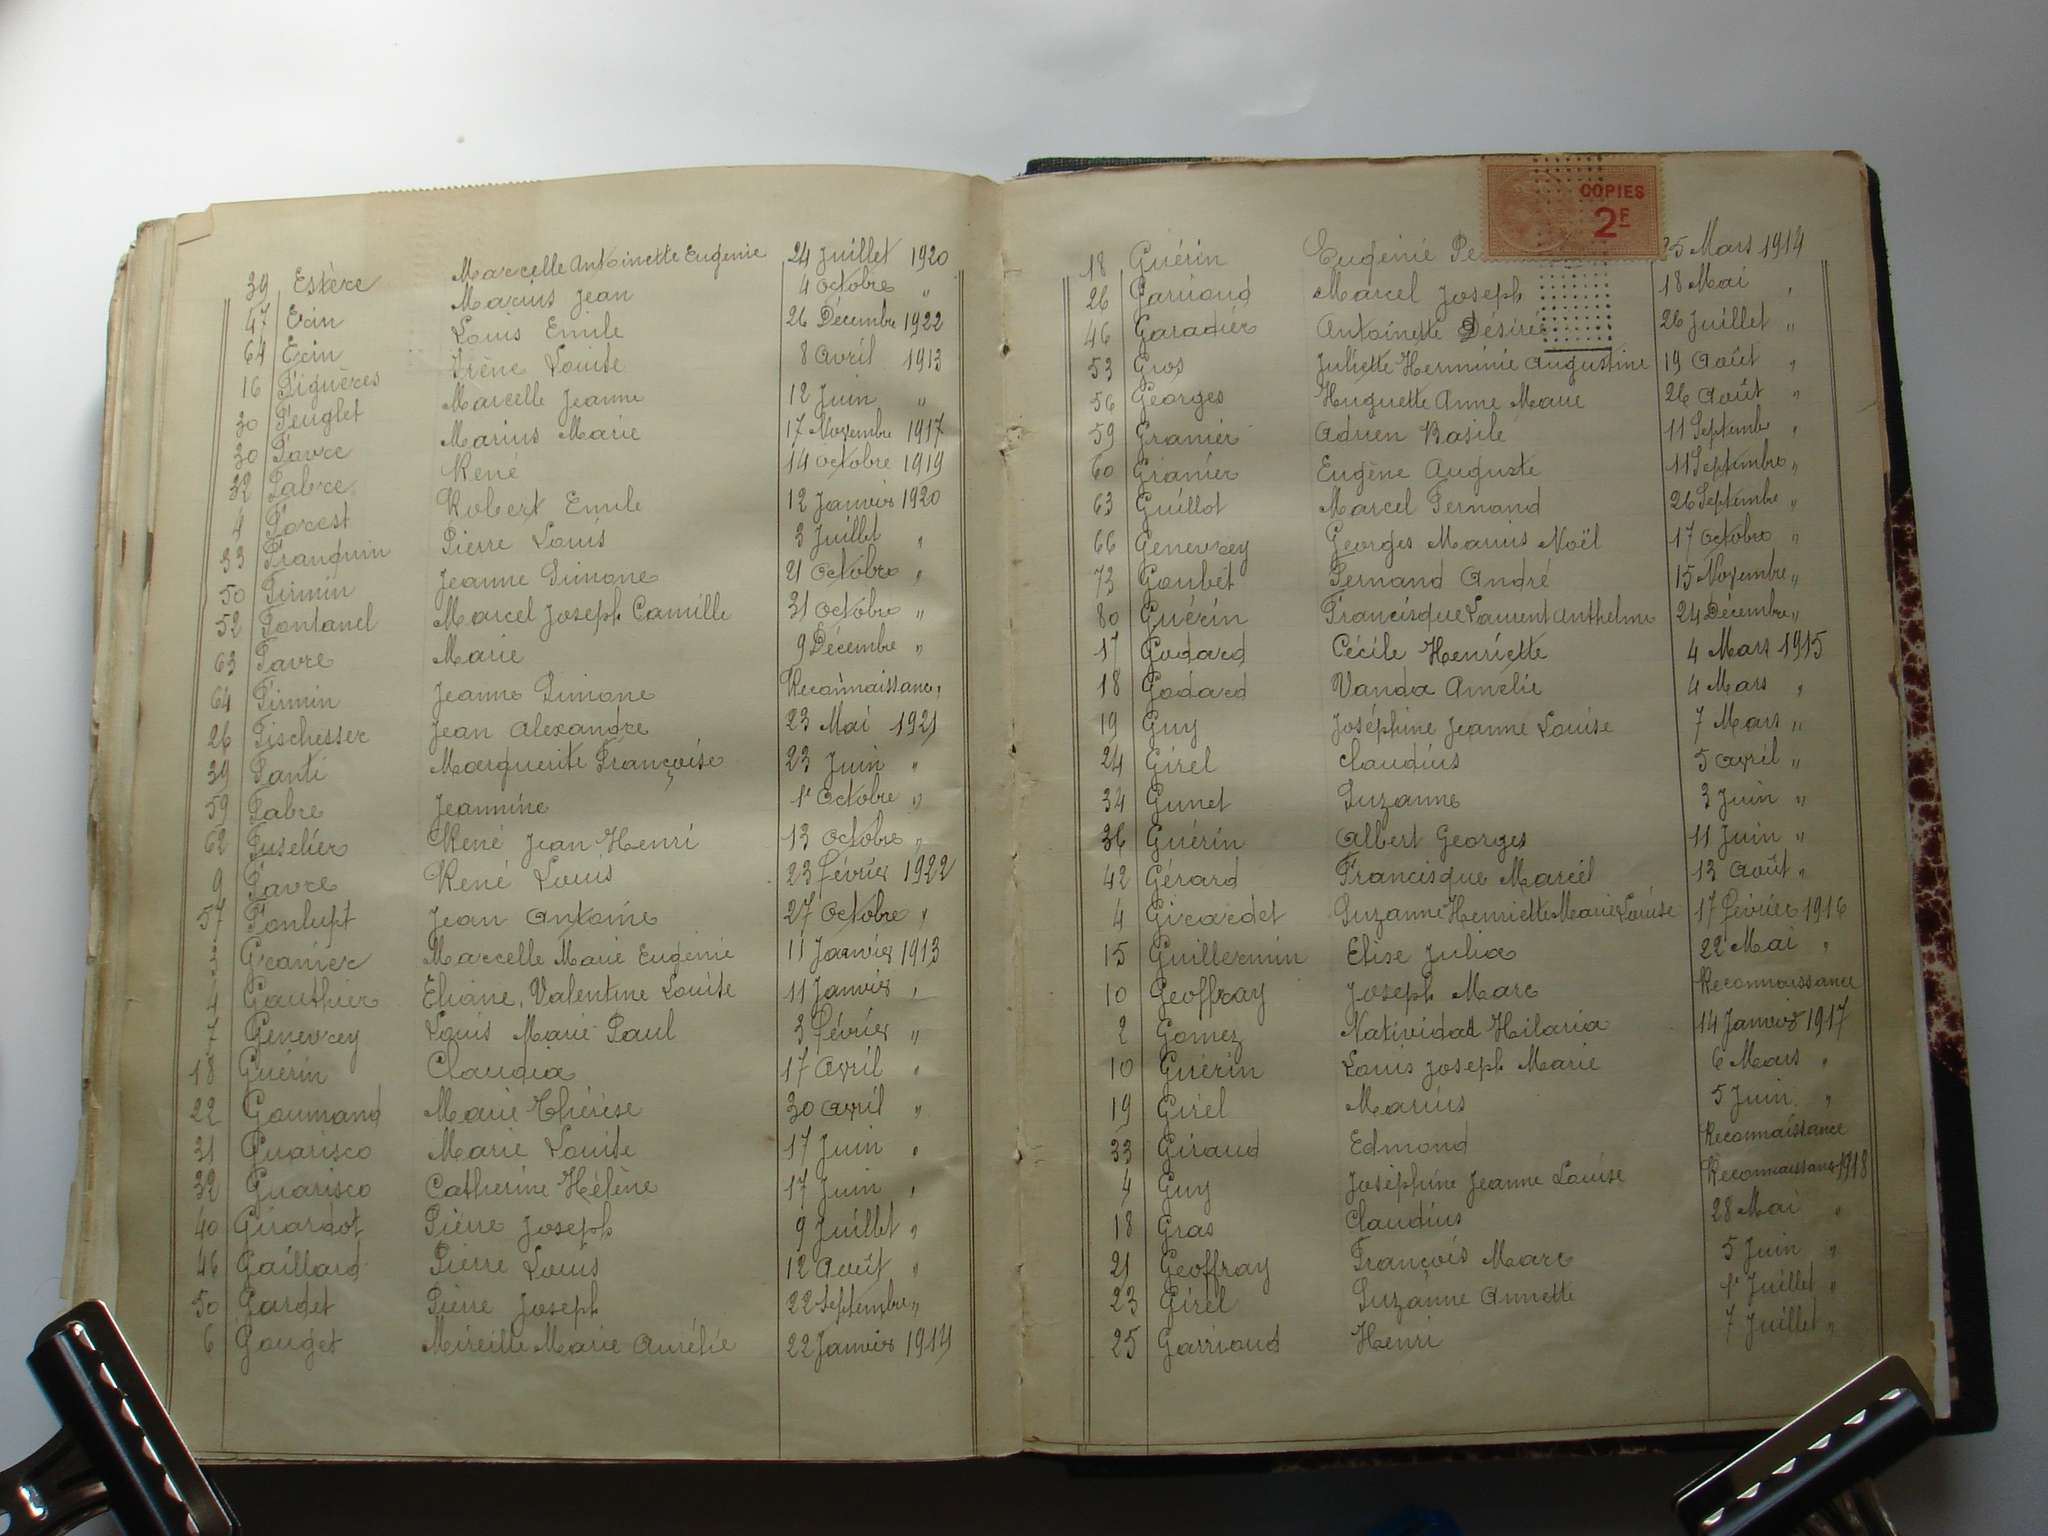 39 Estère Marcelle Antoinette Eugénie 24 Juillet 1920
47 Exin Marius Jean 4 Octobre "
64 Exin Louis Emile 26 Décembre 1922
16 Figuères Irène Louise 8 Avril 1913
30 Feuglet Marcelle Jeanne 12 Juin "
30 Favre Marius Marie 17 Novembre 1917
32 Fabre René 14 Octobre 1919
4 Forest Robert Emile 12 Janvier 1920
33 Franquin Pierre Louis 3 Juillet "
50 Firmin Jeanne Simone 21 Octobre "
52 Fontanel Marcel Joseph Camille 31 Octobre "
63 Favre Marie 9 Décembre "
64 Firmin Jeanne Simone Reconnaissance "
26 Fischesser Jean Alexandre 23 Mai 1921
39 Fanti Marguerite Françoise 23 Juin "
59 Fabre Jeannine 1er Octobre "
62 Fuselier René Jean Henri 13 Octobre "
9 Favre René Louis 23 Février 1922
57 Fonlupt Jean Antoine 27 Octobre "
3 Granier Marcelle Marie Eugénie 11 Janvier 1913
4 Gauthier Eliane, Valentine Louise 11 Janvier "
7 Genevrey Louis Marie Paul 3 Février "
18 Guérin Claudia 17 Avril "
22 Goumand Marie Thérèse 30 Avril "
31 Guarisco Marie Louise 17 Juin "
32 Guarisco Catherine Hélène 17 Juin "
40 Girardot Pierre Joseph 9 Juillet "
46 Gaillard Pierre Louis 12 Août "
50 Gardet Pierre Joseph 22 Septembre "
6 Gouget Mireille Marie Aurélie 22 Janvier 1914
COPIES
2F
18 Guérin Eugénie 25 Mars 1914
26 Garnoud Marcel Joseph 18 Mai "
46 Garadier Antoinette Désirée 26 Juillet "
53 Gros Juliette Herminie Augustine 19 Août "
56 Georges Huguette Anne Marie 26 Août "
59 Granier Adrien Basile 11 Septembre "
60 Granier Eugène Auguste 11 Septembre "
63 Guillot Marcel Fernand 26 Septembre "
66 Genevrey Georges Marius Noël 17 Octobre "
73 Goubet Fernand André 15 Novembre "
80 Guérin Francisque Laurent Anthelme 24 Décembre "
17 Godard Cécile Henriette 4 Mars 1915
18 Godard Vanda Amélie 4 Mars "
19 Guy Joséphine Jeanne Louise 7 Mars "
24 Girel Claudius 5 Avril "
34 Gunet Suzanne 3 Juin "
36 Guérin Albert Georges 11 Juin "
42 Gérard Francisque Marcel 13 Août "
4 Girardet Suzanne Henriette Marie Louise 17 Février 1916
15 Guillermin Elise Julia 22 Mai "
10 Geoffray Joseph Marc Reconnaissance
2 Gomez Natividad Hilaria 14 Janvier 1917
10 Guérin Louis Joseph Marie 6 Mars "
19 Girel Marius 5 Juin "
33 Giraud Edmond Reconnaissance
4 Guy Joséphine Jeanne Louise Reconnaissance 1918
18 Gras Claudius 28 Mai "
21 Geoffray François Marc 5 Juin "
23 Girel Suzanne Annette 1er Juillet "
25 Garrioud Henri 7 Juillet "